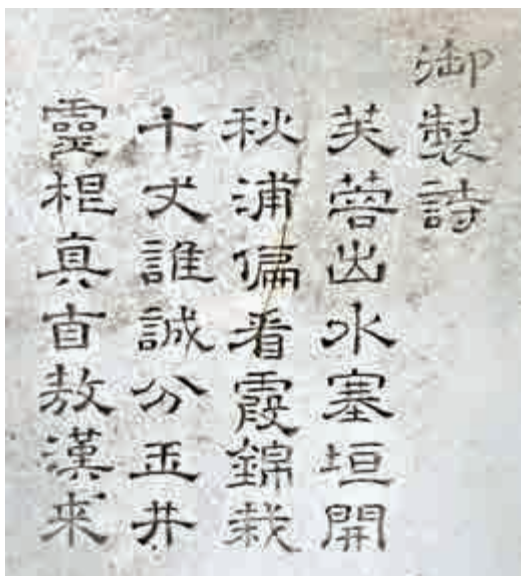 御製詩
芙蓉出水塞垣開
秋浦偏看霞錦栽
十丈誰誠分玉井
靈根真直敖漢來